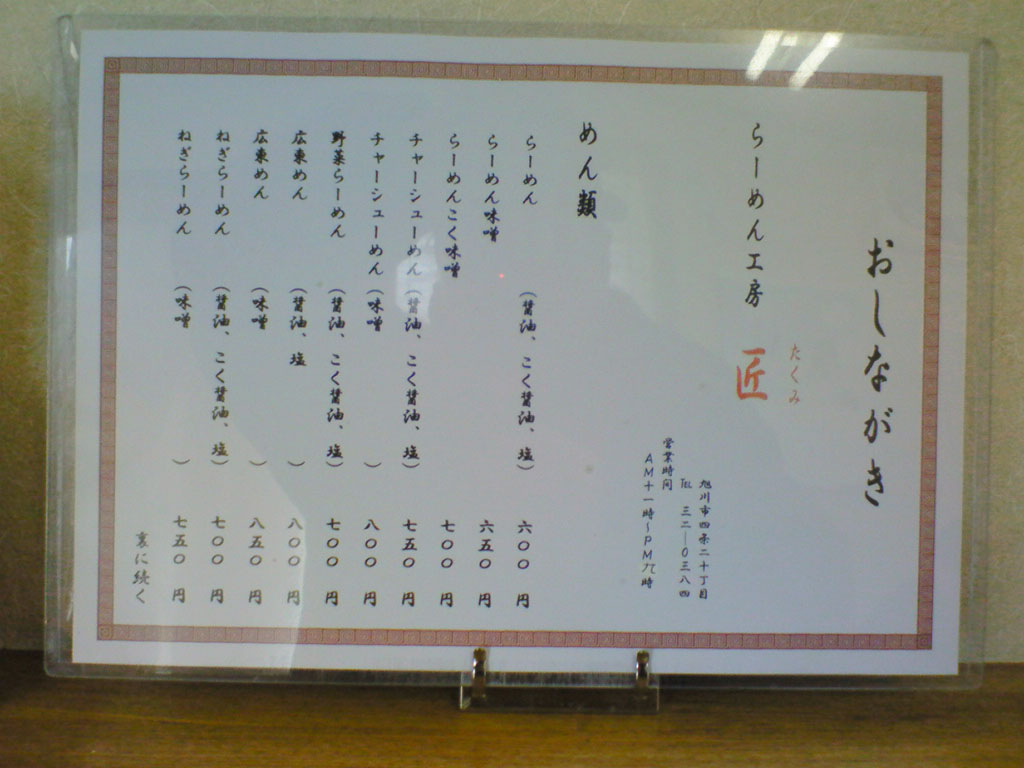 おしながき
らーめん工房 匠
たくみ
旭川市四条二十丁目
TEL 三二―0三八四
営業時間
AM十一時～PM九時
めん類
らーめん (醤油、こく醤油、塩) 六〇〇 円
らーめん味噌 六五〇 円
らーめんこく味噌 七〇〇 円
チャーシューめん (醤油、こく醤油、塩) 七五〇 円
チャーシューめん (味噌 ) 八〇〇 円
野菜らーめん (醤油、こく醤油、塩) 七〇〇 円
広東めん (醤油、塩 ) 八〇〇 円
広東めん (味噌 ) 八五〇 円
ねぎらーめん (醤油、こく醤油、塩) 七〇〇 円
ねぎらーめん (味噌 ) 七五〇 円
裏に続く